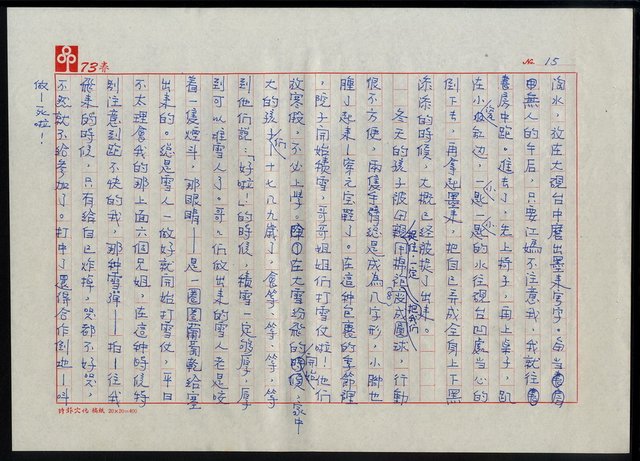 73春
№ 15
淘水,放在大硯台中磨出墨來寫字。每當
無人的午后,只要江媽不注意我,我就往書
書房中跑。進去了,先上椅子,再上桌子,趴
在小水缸邊,一匙一匙的水往硯台凹處小心的
倒下去,再拿起墨來,把自己弄成全身上下黑
漆漆的時候,大概已經被捉了出來。
冬天的孩子被用棉袍包成圓球,行動
很不方便,兩隻手臂總是成為八字形,小腳也
腫了起來—穿元寶鞋了。在這種包裹的季節裡
,院子開始積雪,哥哥姐姐們打雪仗啦!他們
放寒假,不必上學。在大雪紛飛的時候,家中
大的孩子們—十七八九歲了,會等、等、等,等
到他們說:「好啦!」的時候,積雪一定夠厚,厚
到可以堆雪人了。哥哥們做出來的雪人老是咬
著一隻煙斗,那眼睛——是一圈圈葡萄乾給塞
出來的。總是雪人一做好就開始打雪仗,平日
不太理會我的那上面六個兄姐,在這種時候特
別注意到跑不快的我,那種雪彈——拍—往我
飛來的時候,只有給自己炸掉,哭都不好哭,
不然就不給參加了。打中了還得合作倒地—叫
做—死啦!
時報文化 稿紙 20×20=400